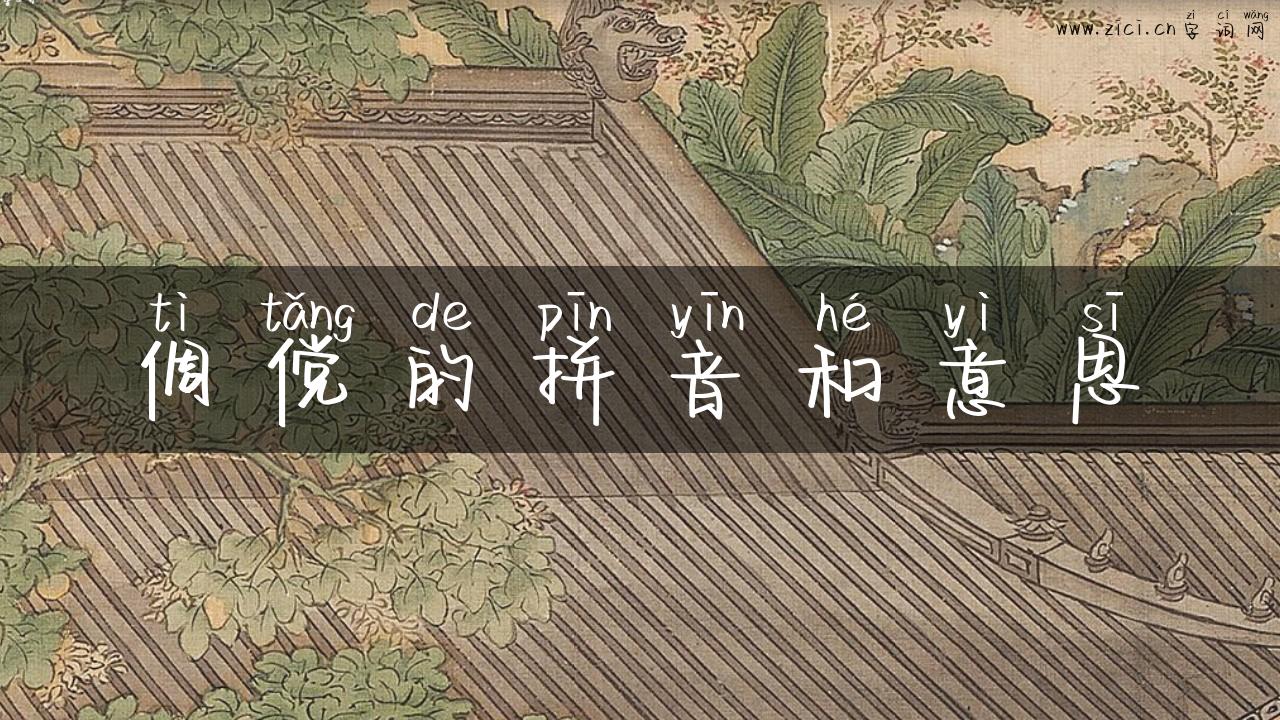 zì cí wǎng
www.zici.cn 字词网
tì tǎng de pīn yīn hé yì sī
倜傥的拼音和意思